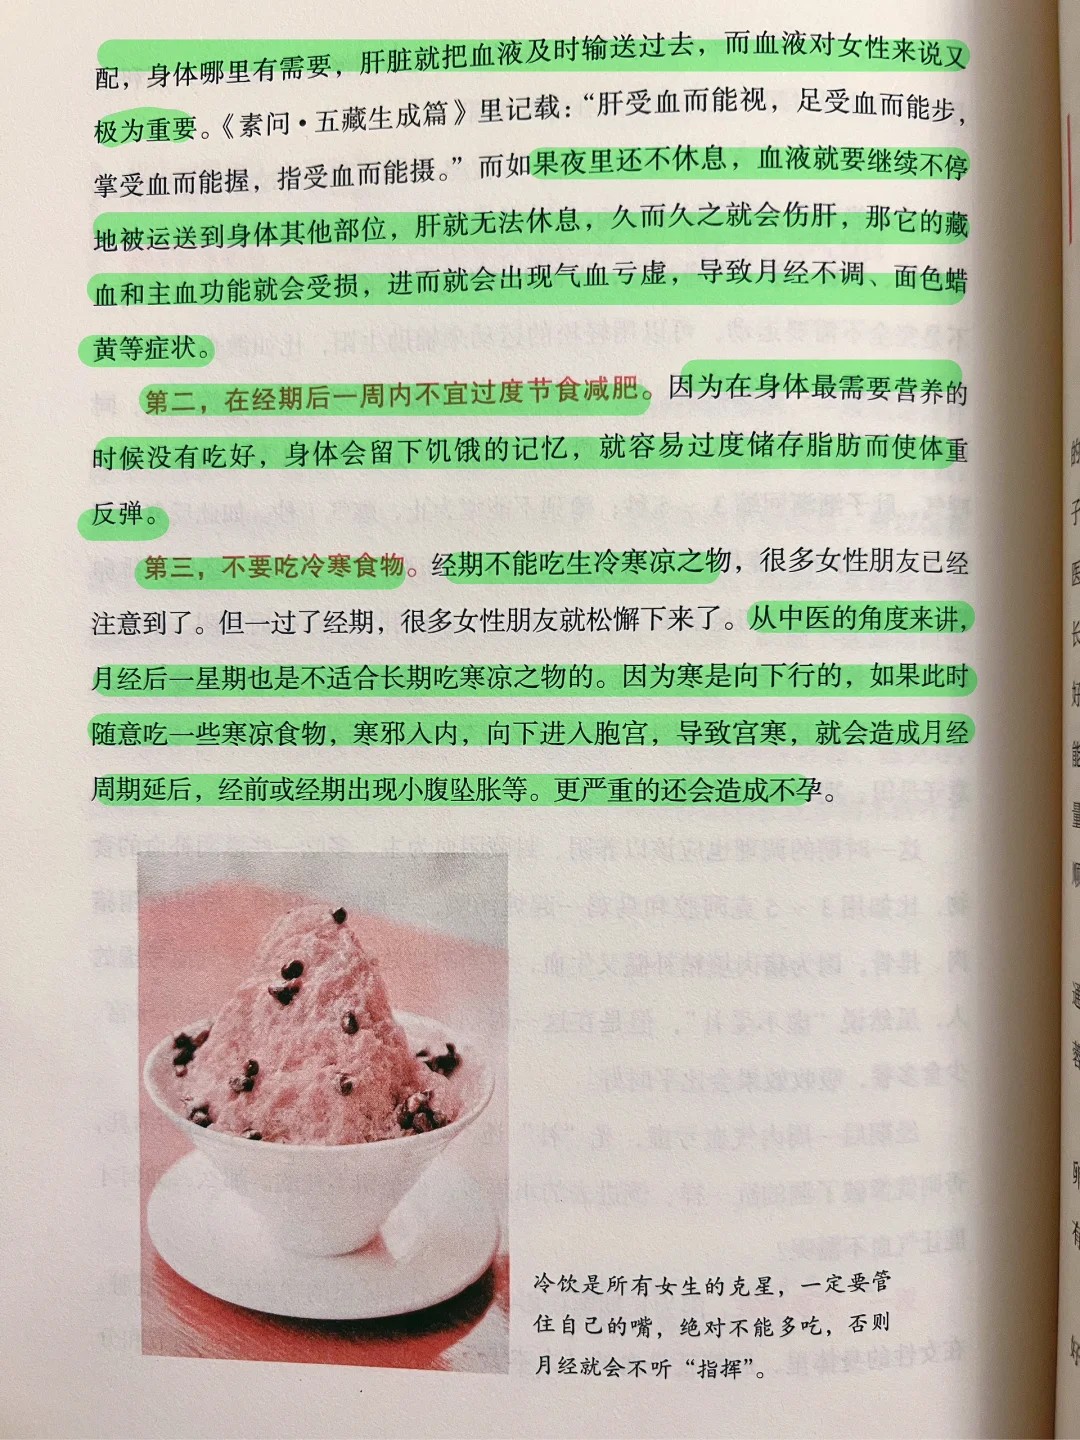 配，身体哪里有需要，肝脏就把血液及时输送过去，而血液对女性来说又
极为重要。《素问·五藏生成篇》里记载：“肝受血而能视，足受血而能步，
掌受血而能握，指受血而能摄。”而如果夜里还不休息，血液就要继续不停
地被运送到身体其他部位，肝就无法休息，久而久之就会伤肝，那它的藏
血和主血功能就会受损，进而就会出现气血亏虚，导致月经不调、面色蜡
黄等症状。
第二，在经期后一周内不宜过度节食减肥。因为在身体最需要营养的
时候没有吃好，身体会留下饥饿的记忆，就容易过度储存脂肪而使体重
反弹。
第三，不要吃冷寒食物。经期不能吃生冷寒凉之物，很多女性朋友已经
注意到了。但一过了经期，很多女性朋友就松懈下来了。从中医的角度来讲，
月经后一星期也是不适合长期吃寒凉之物的。因为寒是向下行的，如果此时
随意吃一些寒凉食物，寒邪入内，向下进入胞宫，导致宫寒，就会造成月经
周期延后，经前或经期出现小腹坠胀等。更严重的还会造成不孕。
冷饮是所有女生的克星，一定要管
住自己的嘴，绝对不能多吃，否则
月经就会不听“指挥”。